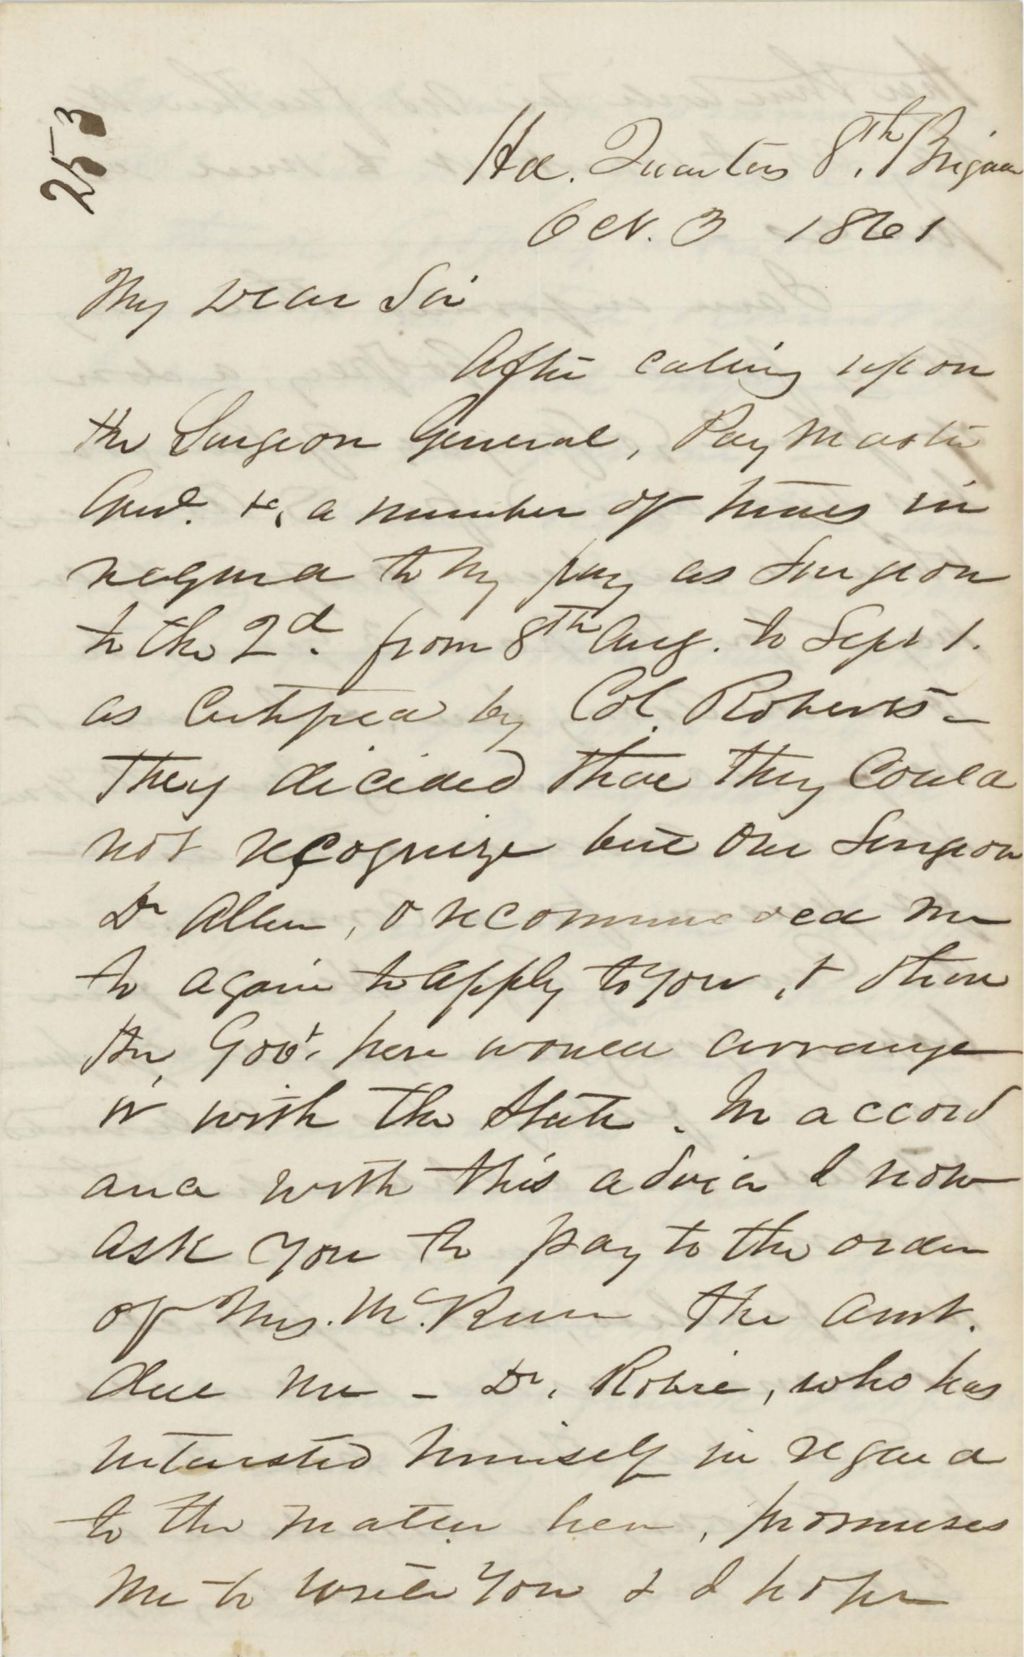 253
Hd. Quarters 8th. Brigade
Oct. 3 1861
My Dear Sir
After calling upon
the Surgeon General, Pay Master
Genl. &c, a number of times in
regard to my pay as Surgeon
to the 2d. from 8th Aug. to Sept 1.
as certified by Col. Roberts –
They decided that they could
not recognize but one Surgeon
Dr Allen, & recommended me
to again to apply to you, & than
the Govt. here would arrange
it with the State. In accord
ance with this advice I now
ask you to pay to the order
of Mrs. McRuer the amt.
due me – Dr. Robie, who has
interested himself in regard
to the matter here, promises
me to write you & I hope